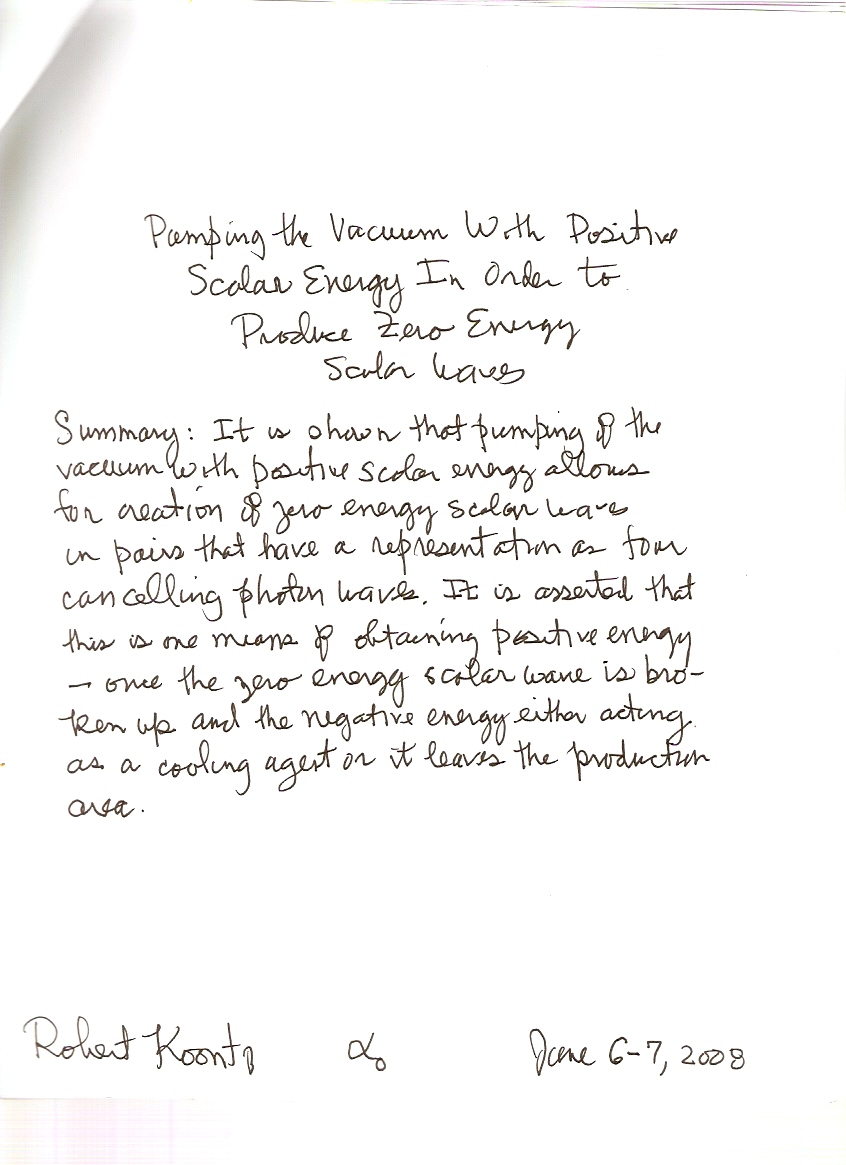 Pumping the Vacuum With Positive
Scalar Energy In Order to
Produce Zero Energy
Scalar Waves
Summary: It is shown that pumping of the
vacuum with positive scalar energy allows
for creation of zero energy scalar waves
in pairs that have a representation as four
cancelling photon waves. It is asserted that
this is one means of obtaining positive energy
— once the zero energy scalar wave is bro-
ken up and the negative energy either acting
as a cooling agent or it leaves the production
area.
Robert Koontz α₀ June 6-7, 2008